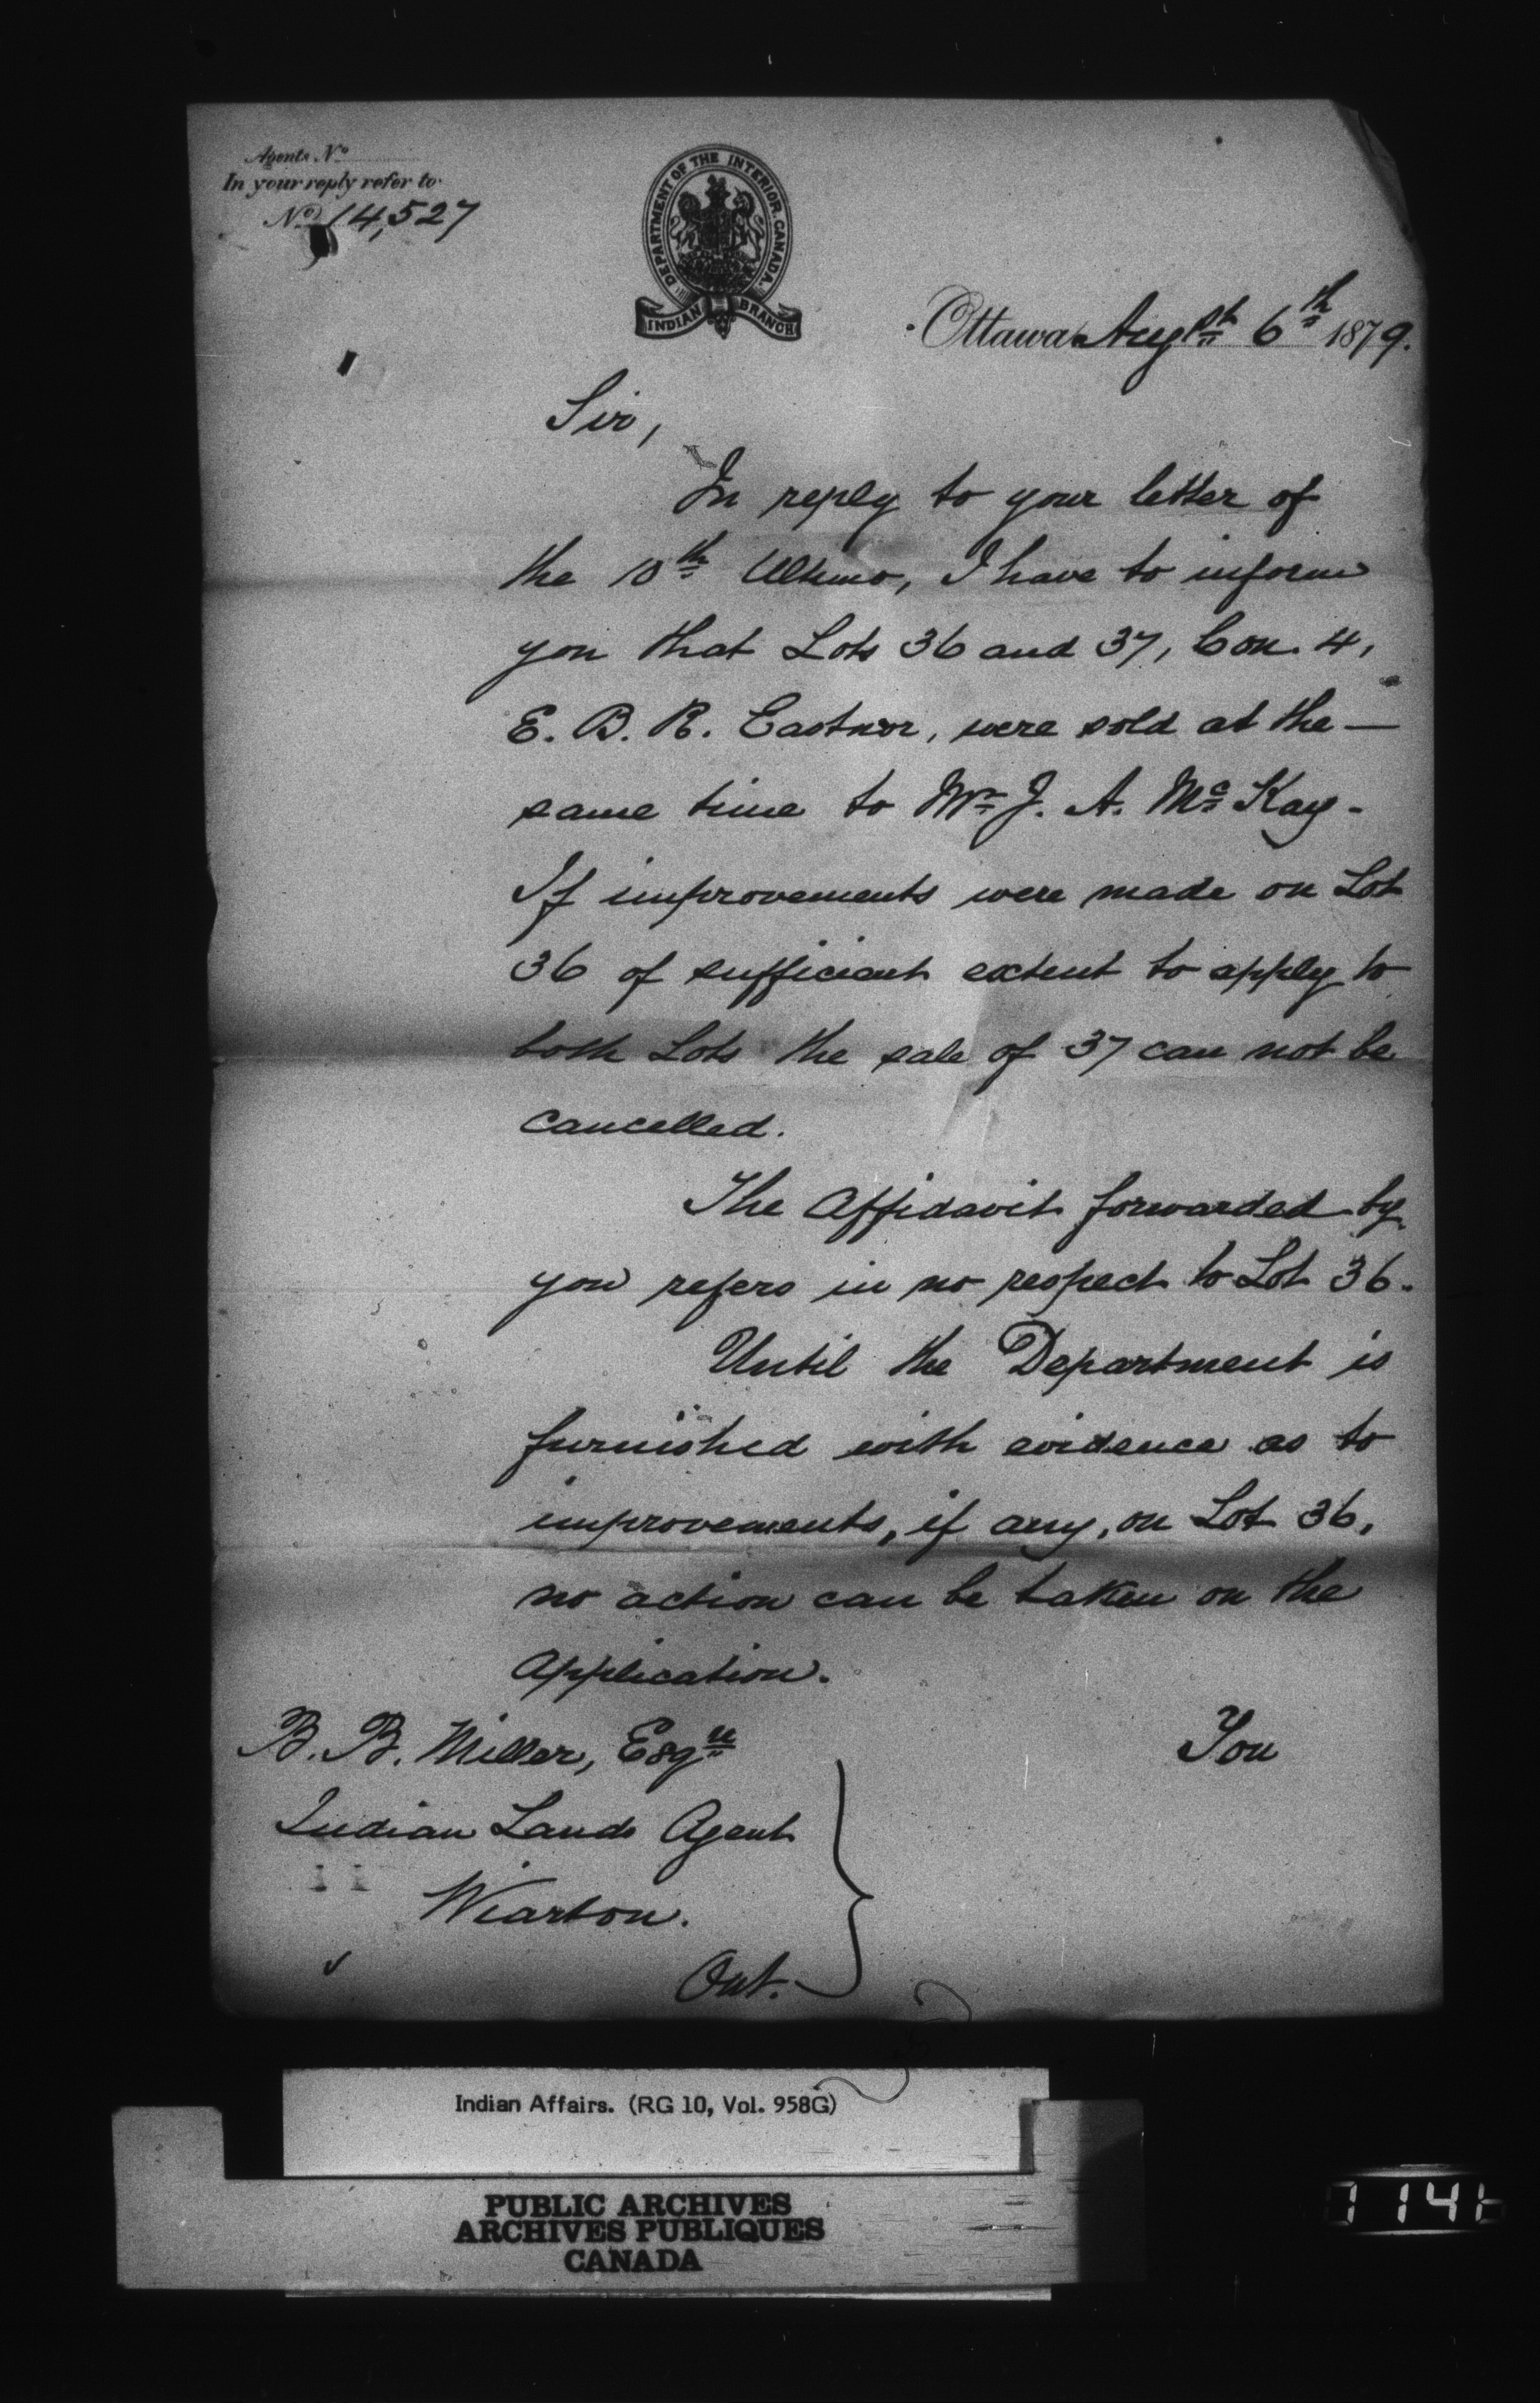 Agents No
In your reply refer to
No 14,527
DEPARTMENT OF THE INTERIOR. CANADA.
INDIAN BRANCH
Ottawa Augst 6th 1879.
Sir,
In reply to your letter of
the 10th Ultimo, I have to inform
you that Lots 36 and 37, Con. 4,
E. B. R. Eastnor, were sold at the —
same time to Mr J. A. McKay -
If improvements were made on Lot
36 of sufficient extent to apply to
both Lots the sale of 37 can not be
cancelled.
The Affidavit forwarded by
you refers in no respect to Lot 36.
Until the Department is
furnished with evidence as to
improvements, if any, on Lot 36,
no action can be taken on the
Application.
You
B. B. Miller, Esqre
Indian Lands Agent
Wiarton.
Ont.
Indian Affairs. (RG 10, Vol. 958G)
PUBLIC ARCHIVES
ARCHIVES PUBLIQUES
CANADA